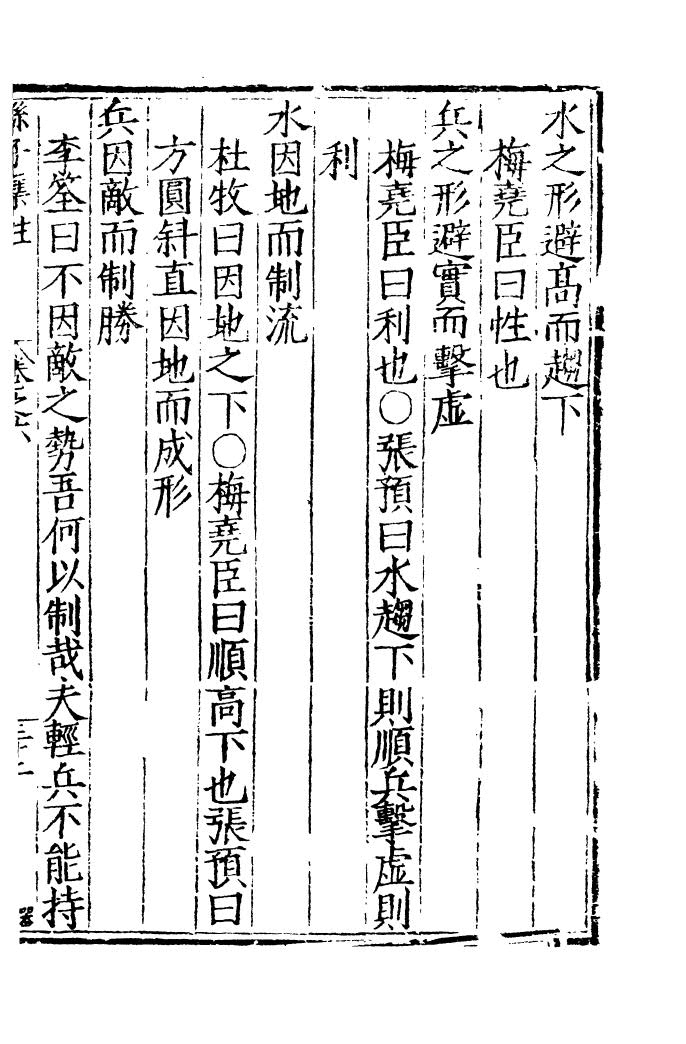 水之形避髙而趨下
梅堯臣曰性也
兵之形避實而擊虛
梅堯臣曰利也○張預曰水趨下則順兵擊虛則
利
水因地而制流
杜牧曰因地之下○梅堯臣曰順高下也張預曰
方圓斜直因地而成形
兵因敵而制勝
李筌曰不因敵之勢吾何以制哉夫輕兵不能持